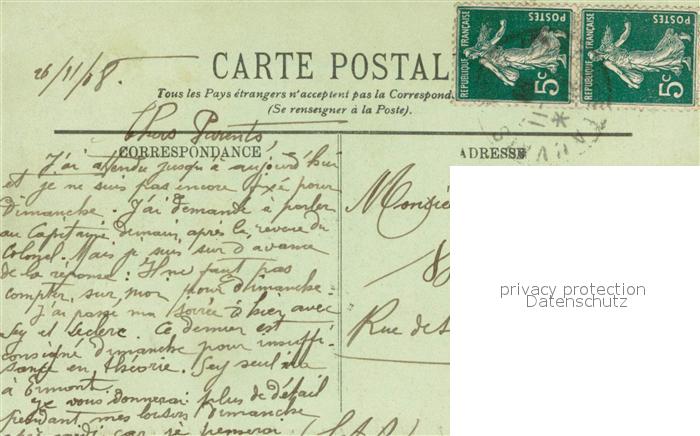 26/11/08.
CARTE POSTAL
Tous les Pays étrangers n'acceptent pas la Correspond
(Se renseigner à la Poste).
REPUBLIQUE FRANÇAISE
POSTES
5c
REPUBLIQUE FRANÇAISE
POSTES
5c
Chers Parents
CORRESPONDANCE
J'ai attendu jusqu'à aujourd'hui
et je ne suis pas encore fixé pour
Dimanche. J'ai demandé à parler
au Capitaine demain après la revue du
Colonel. Mais je suis sur d'avance
de la réponse: Il ne faut pas
compter sur moi pour dimanche.
J'ai passé ma soirée d'hier avec
Sey et Leclerc. Ce dernier est
consigné dimanche pour insuffi-
sance en théorie. Sey seul ira
à Ermont.
Je vous donnerai plus de détail
pendant mes loisirs dimanche
après midi car je penserai
ADRESSE
Monsie
8
Rue de
privacy protection
Datenschutz